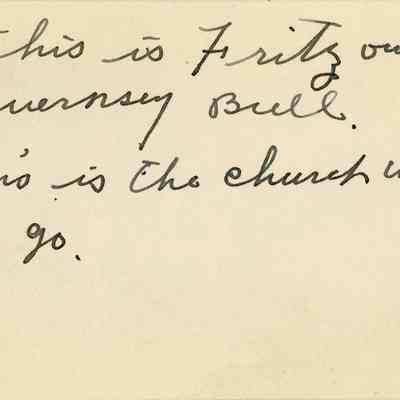 this is Fritz our
uernsey Bull.
is is the church w
go.